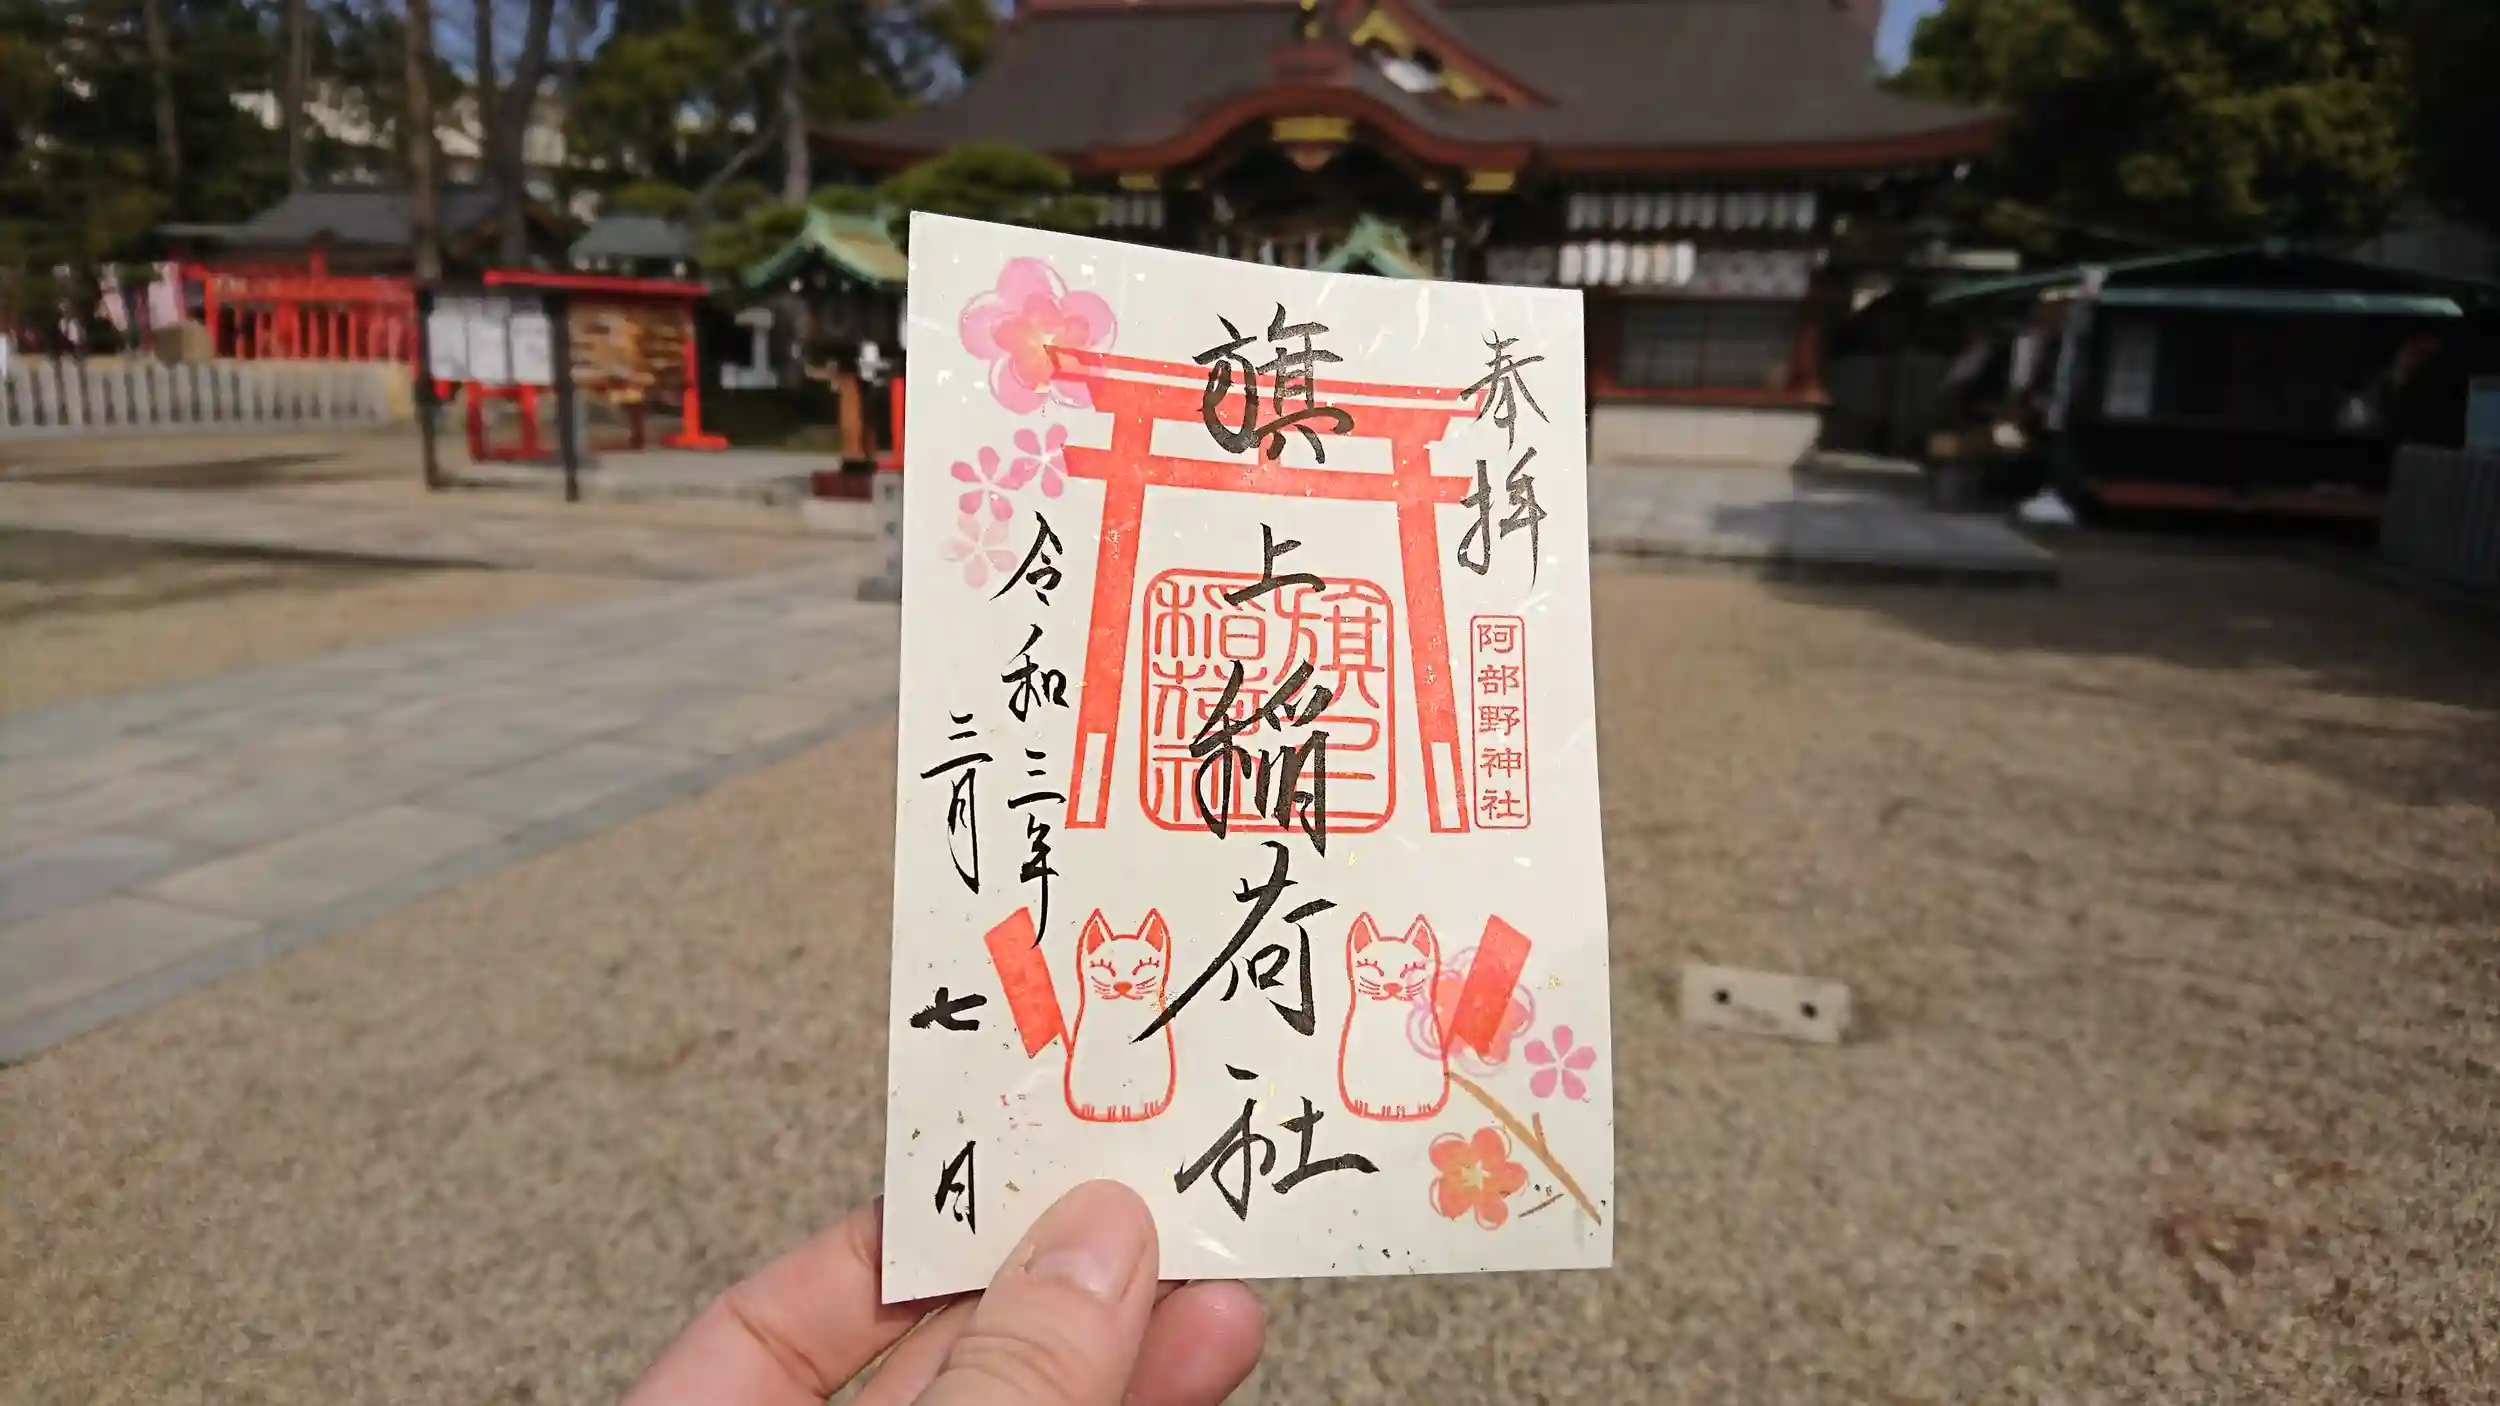 奉拝
阿部野神社
旗上稲荷社
旗上
稲荷社
令和三年
三月七日